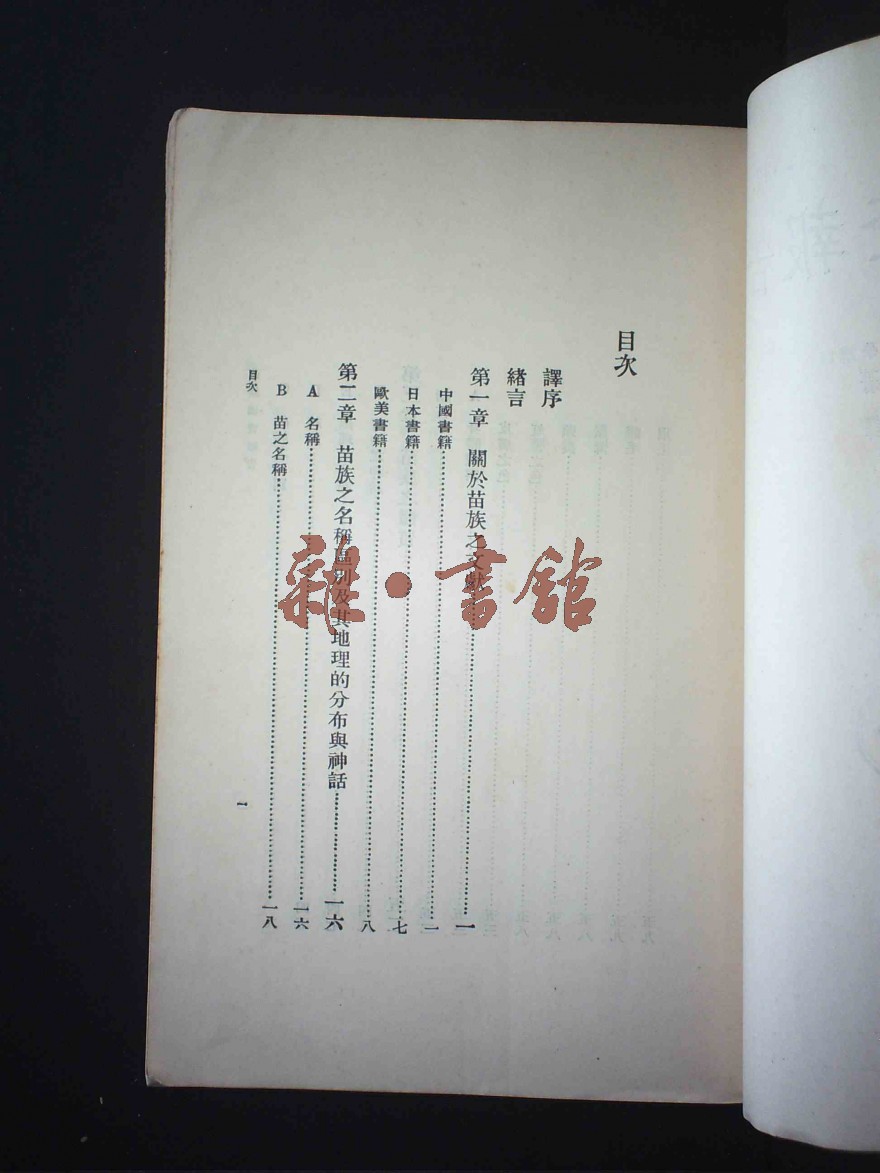 目次
譯序
緒言
第一章 關於苗族之文獻……一
中國書籍……一
日本書籍……七
歐美書籍……八
第二章 苗族之名稱區別及其地理的分布與神話……一六
A 名稱……一六
B 苗之名稱……一八
目次
一
雜·書館
報